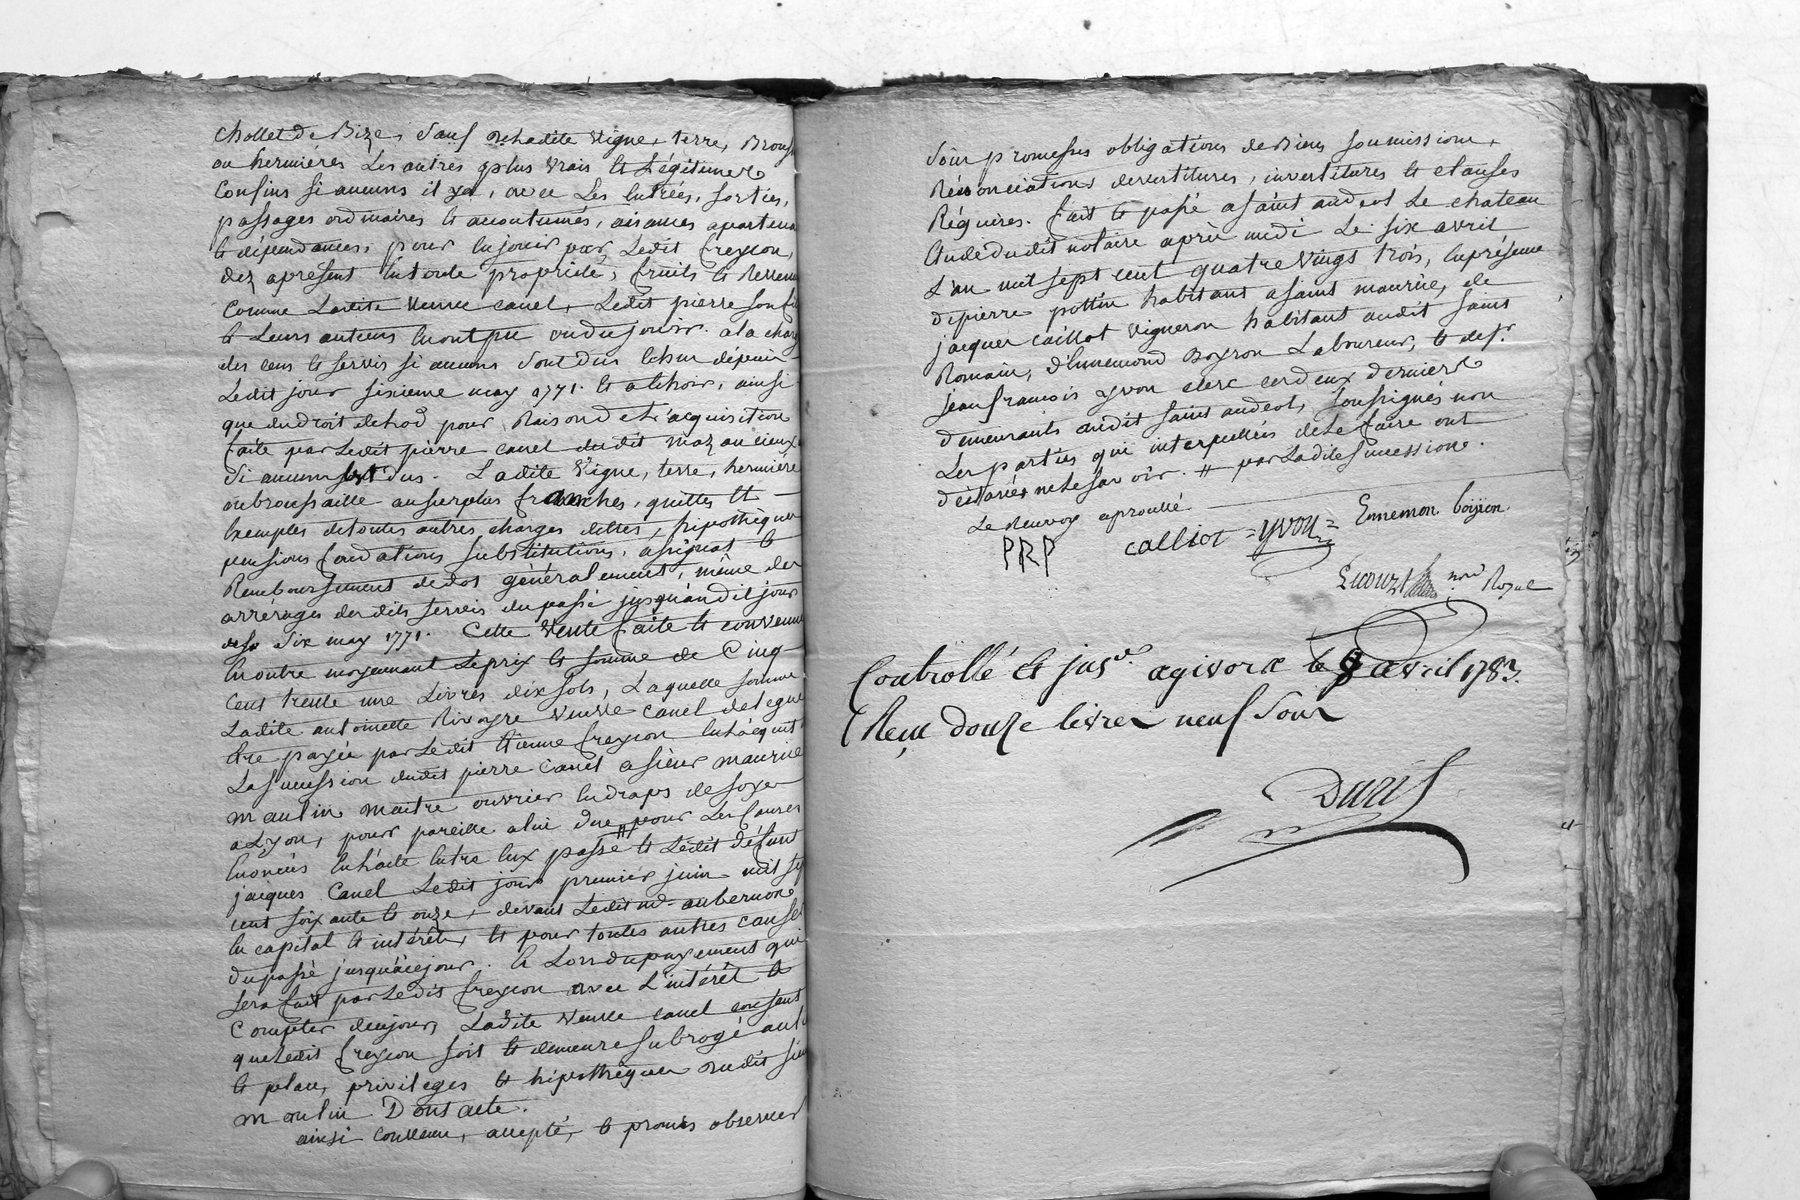 Chollet de Bize, Sauf de ladite Vigne, terre, Brouss
ou hermiéres Les autres plus vrais et Légitimes
Confins si aucuns il ya, avec Les Entrées, sorties,
passages ordinaires et accoutumés, aisances apartena
et dépendances, pour En jouir par Ledit freycon,
dez apresent En toute propriété, fruits et Revenu
Comme Ladite Veuve canel, Ledit pierre son fi
et Leurs auteurs En ont pu ou du jouir. a la charg
des cens et servis si aucuns Sont dus Echus dépuis
Ledit jour sixieme may 1771. et a Echoir, ainsi
que du droit de Lod pour Raison de L'acquisition
faite par Ledit pierre canel dudit maz au cieux
Si aucun Est dus. Ladite Vigne, terre, hermiére
ou broussaille au surplus franches, quittes et
Exemptes de toutes autres charges dettes, hipothèques
pensions fondations substitutions, assignat et
Remboursement de dot généralement, même des
arrérages des dits servis du passé jusqu'audit jour
six may 1771. Cette Vente faite et convenue
En outre moyennant Le prix et somme de Cinq
Cent trente une Livres dix sols, Laquelle somme
Ladite antoinette Rivoyre veuve canel delegue
Etre payée par Ledit Etienne freycon En L'acquit
La succession dudit pierre canel a sieur maurice
maulin maitre ouvrier En draps de soye
a Lyon, pour pareille a lui due # pour Les Causes
Enoncées En L'acte Entre Eux passé et Ledit défunt
jacques Canel Ledit jour premier juin mil sep
cent soixante et onze, devant Ledit me aubernon
En capital et intérêts, et pour toutes autres causes
du passé jusqu'à ce jour. Et Lors du payement qui
sera fait par Ledit freycon avec L'intérêt a
Compter de ce jour, Ladite Veuve canel consent
que Ledit freycon soit et demeure subrogé au L
et place, privileges et hipothèques dudit sieu
moulin Dont acte.
ainsi Convenu, accepté, et promis observer
Sous promesses obligations de Biens soumissions,
Rénonciations devestitures, investitures et clauses
Réquises. fait et passé a saint andeol Le chateau
Etude dudit notaire après midi Le six avril
L'an mil sept cent quatre vingt trois, En présence
de pierre pottin habitant a saint maurice, de
jacques caillot vigneron habitant audit saint
Romain, d'Ennemond Boyron Laboureur, et de sr
jean francois yvon clerc ces deux derniers
demeurants audit saint andeol, soussignés non
Les parties qui interpellées de Le faire ont
déclarées ne Le savoir. # par Ladite succession.
Le Renvoy aprouvé
PRP calliot = yvon = Ennemon boiron
Lecourt nore Royal
Controllé et jns.é a givors le 8 avril 1783.
Reçu douze livres neuf sous
Duris